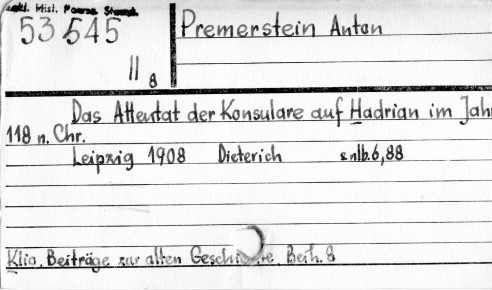 Hist.
53545
II 8
Premerstein Anton
Das Attentat der Konsulare auf Hadrian im Jah
118 n. Chr.
Leipzig 1908 Dieterich 6,88
Klio, Beiträge zur alten Beih. 8